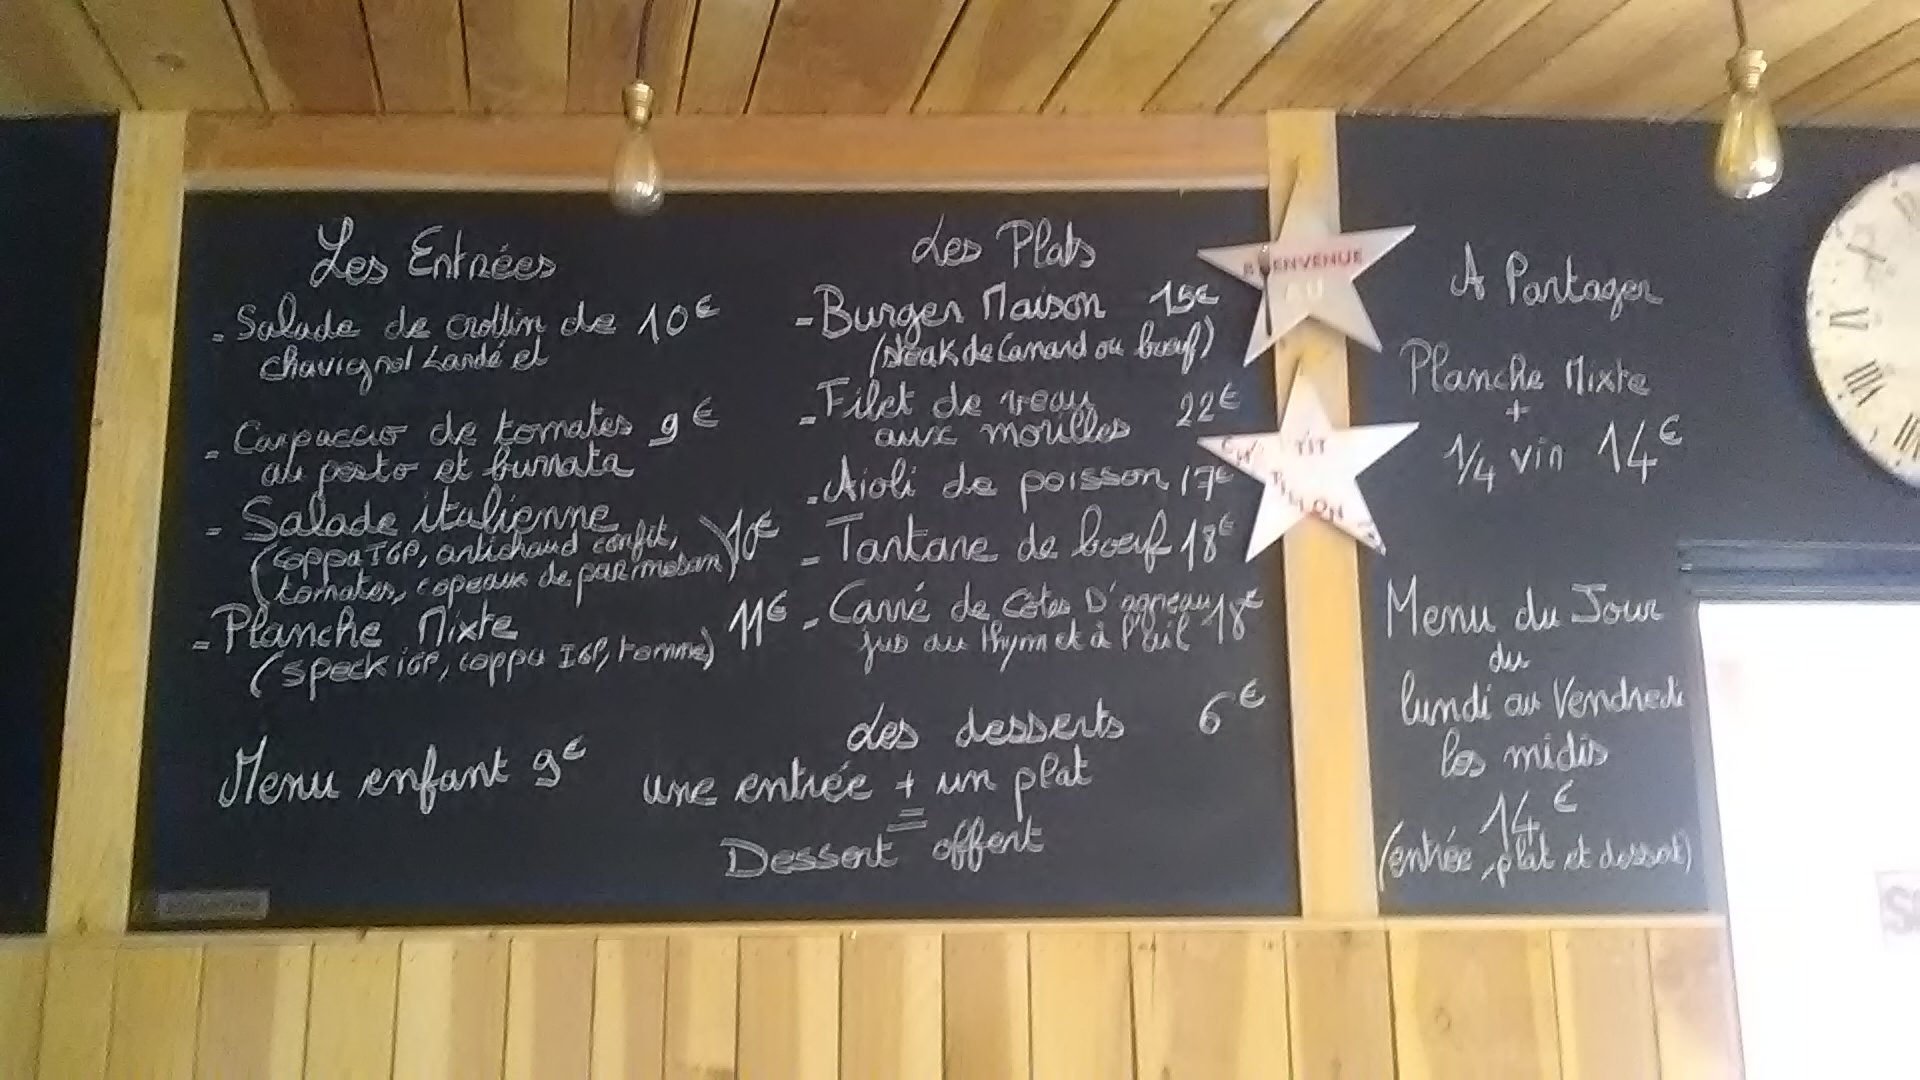 Les Entrées
- Salade de crottin de 10€
chavignol Lardé et
- Carpaccio de tomates 9€
au pesto et burrata
- Salade italienne
(coppa IGP, artichaud confit,
tomates, copeaux de parmesan) 10€
- Planche Mixte 11€
(speck iGP, coppa IGP, tomme)
Menu enfant 9€
Les Plats
- Burger Maison 15€
(steak de Canard ou bœuf)
- Filet de veau 22€
aux morilles
- Aioli de poisson 17€
- Tartare de bœuf 18€
- Carré de Côtes D'agneau 18€
jus au thym et à l'ail
Les desserts 6€
une entrée + un plat
=
Dessert offert
BIENVENUE
AU
TIT
A Partager
Planche Mixte
+
1/4 vin 14€
Menu du Jour
du
lundi au Vendredi
les midis
14€
(entrée, plat et dessert)